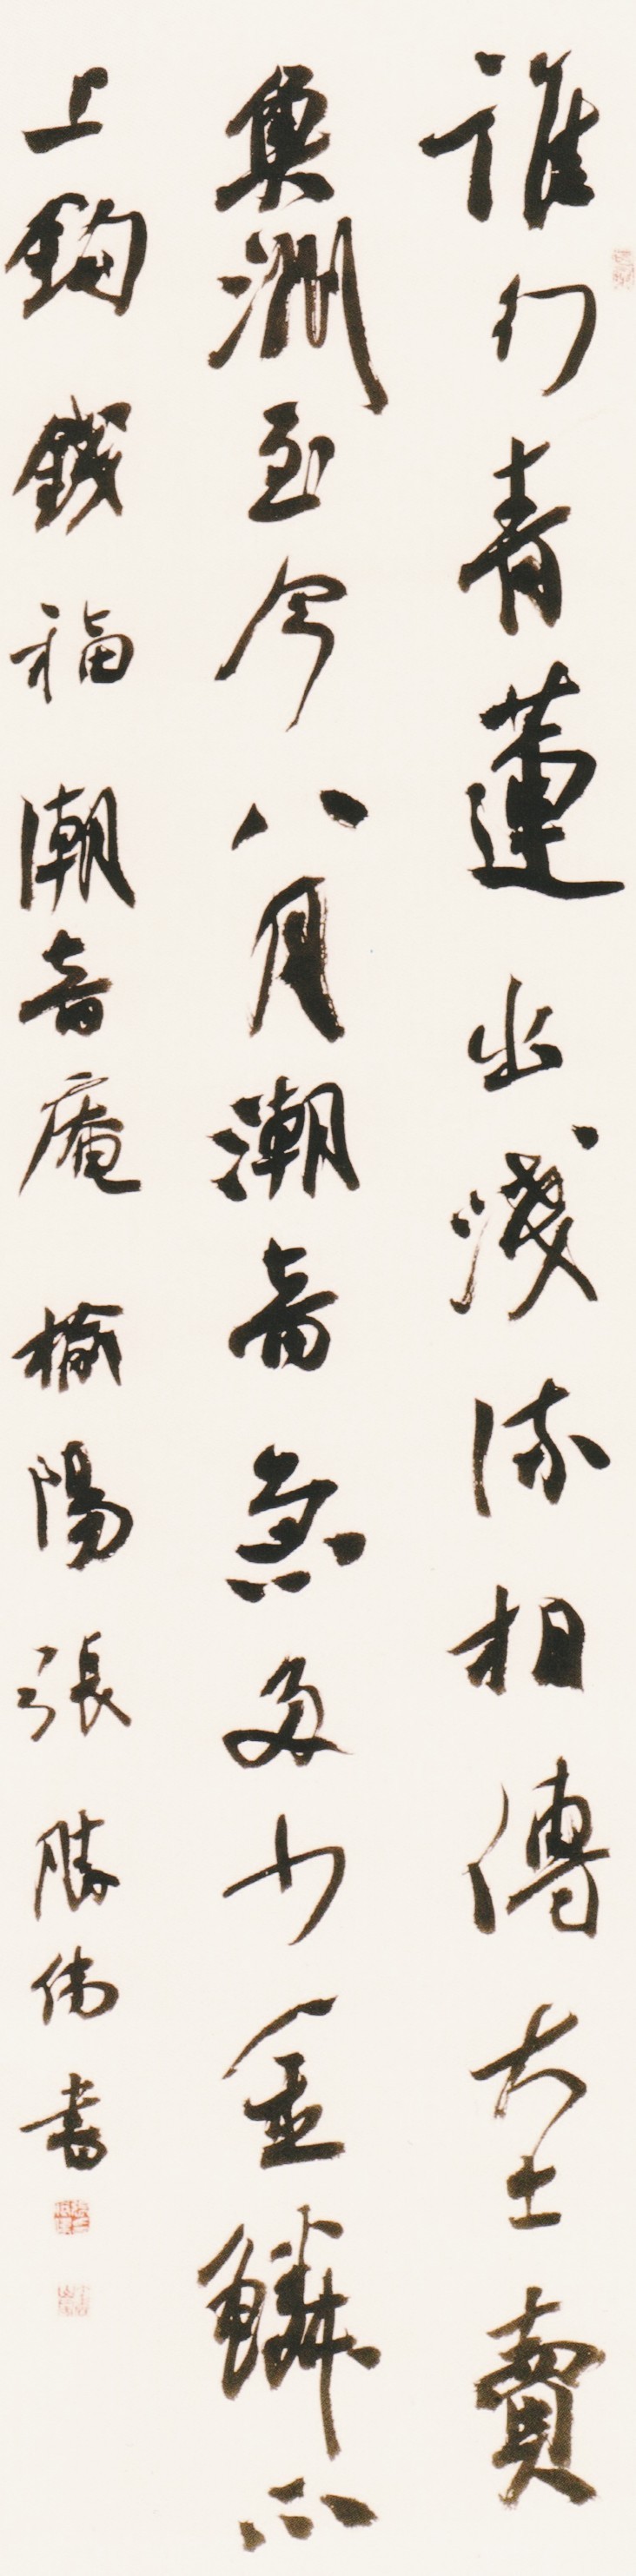 誰幻青蓮出淺流相傳大士賣
魚洲至今八月潮音急多少金鱗不
上鈎錢福潮音庵榆陽張勝偉書